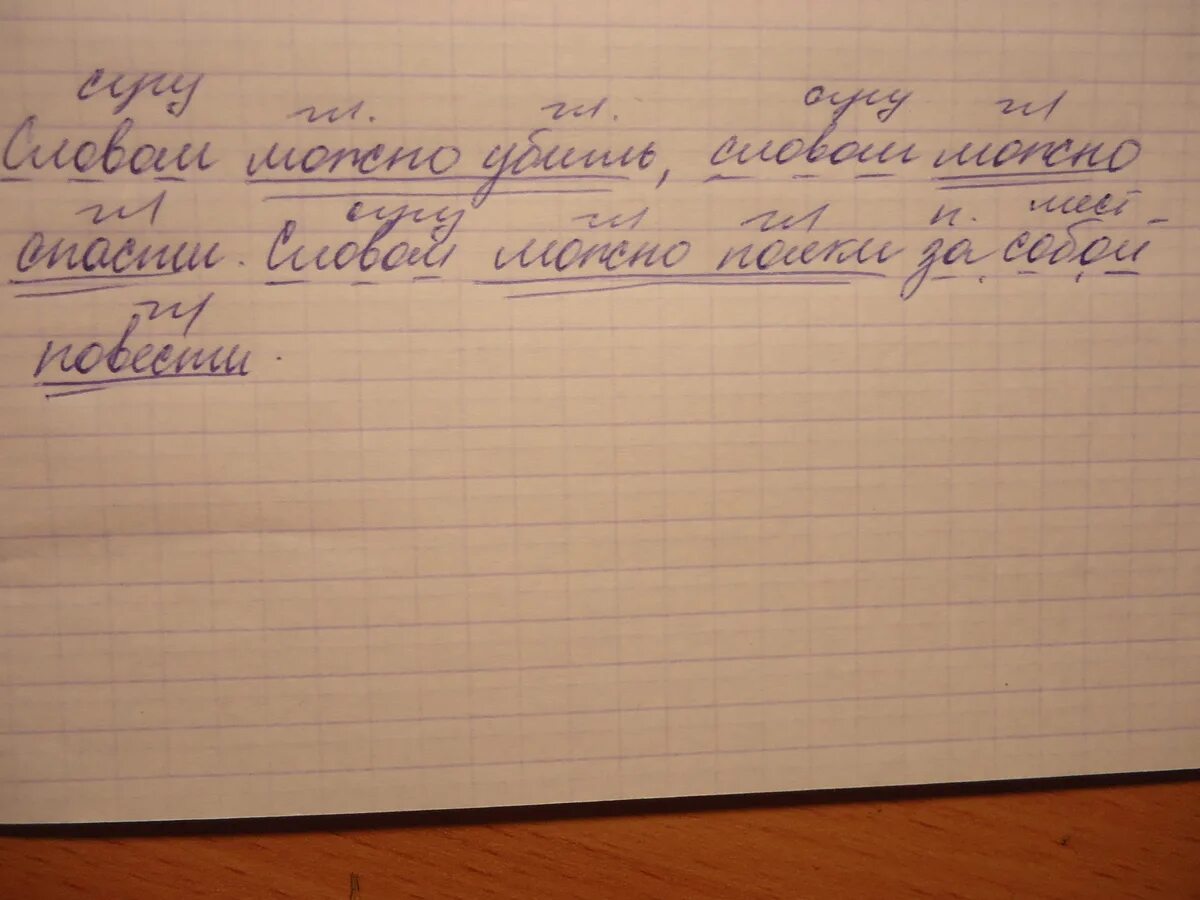 сущ гл. гл. сущ гл
Словом можно убить, словом можно
гл сущ гл гл п. мест
спасти. Словом можно полки за собой
гл
повести.